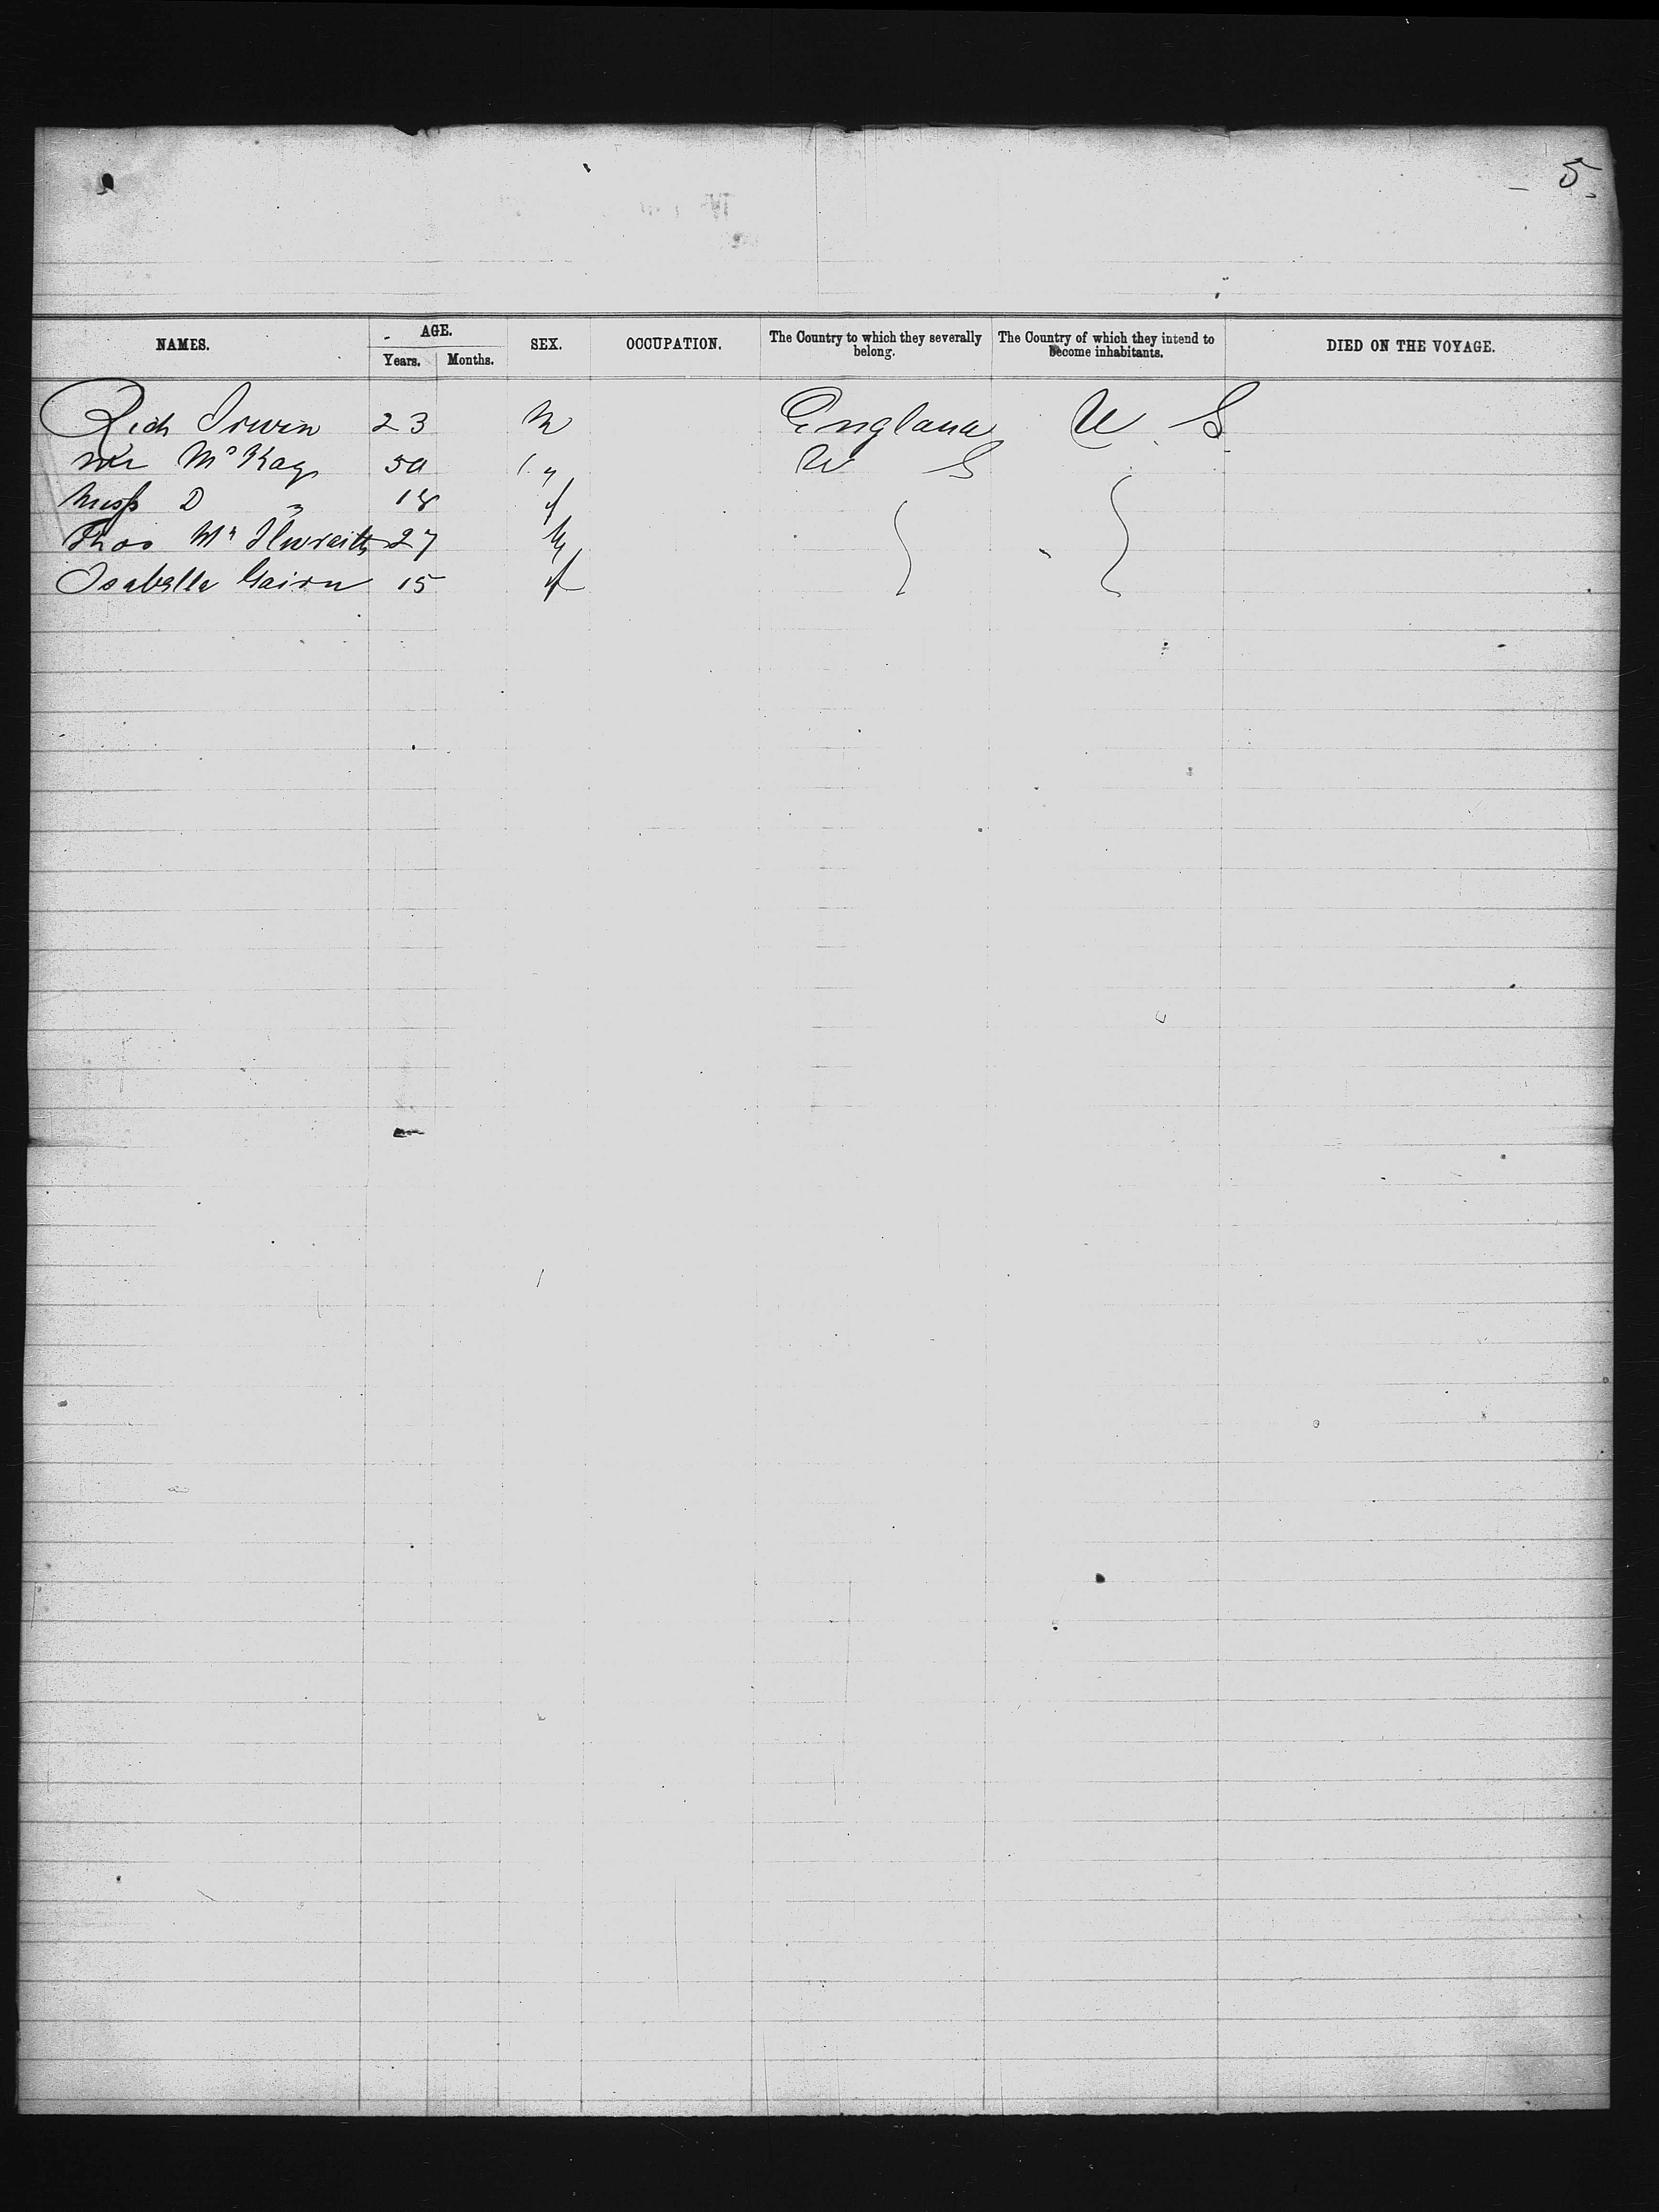 5
NAMES. AGE. SEX. OCCUPATION. The Country to which they severally belong. The Country of which they intend to become inhabitants. DIED ON THE VOYAGE.
Years. Months.
Rich Irwin 23 M England U S
Mr McKay 50 " U S
Miss D " 18 f
Thos Mc Ilwraith 27 M
Isabella Gairn 15 f